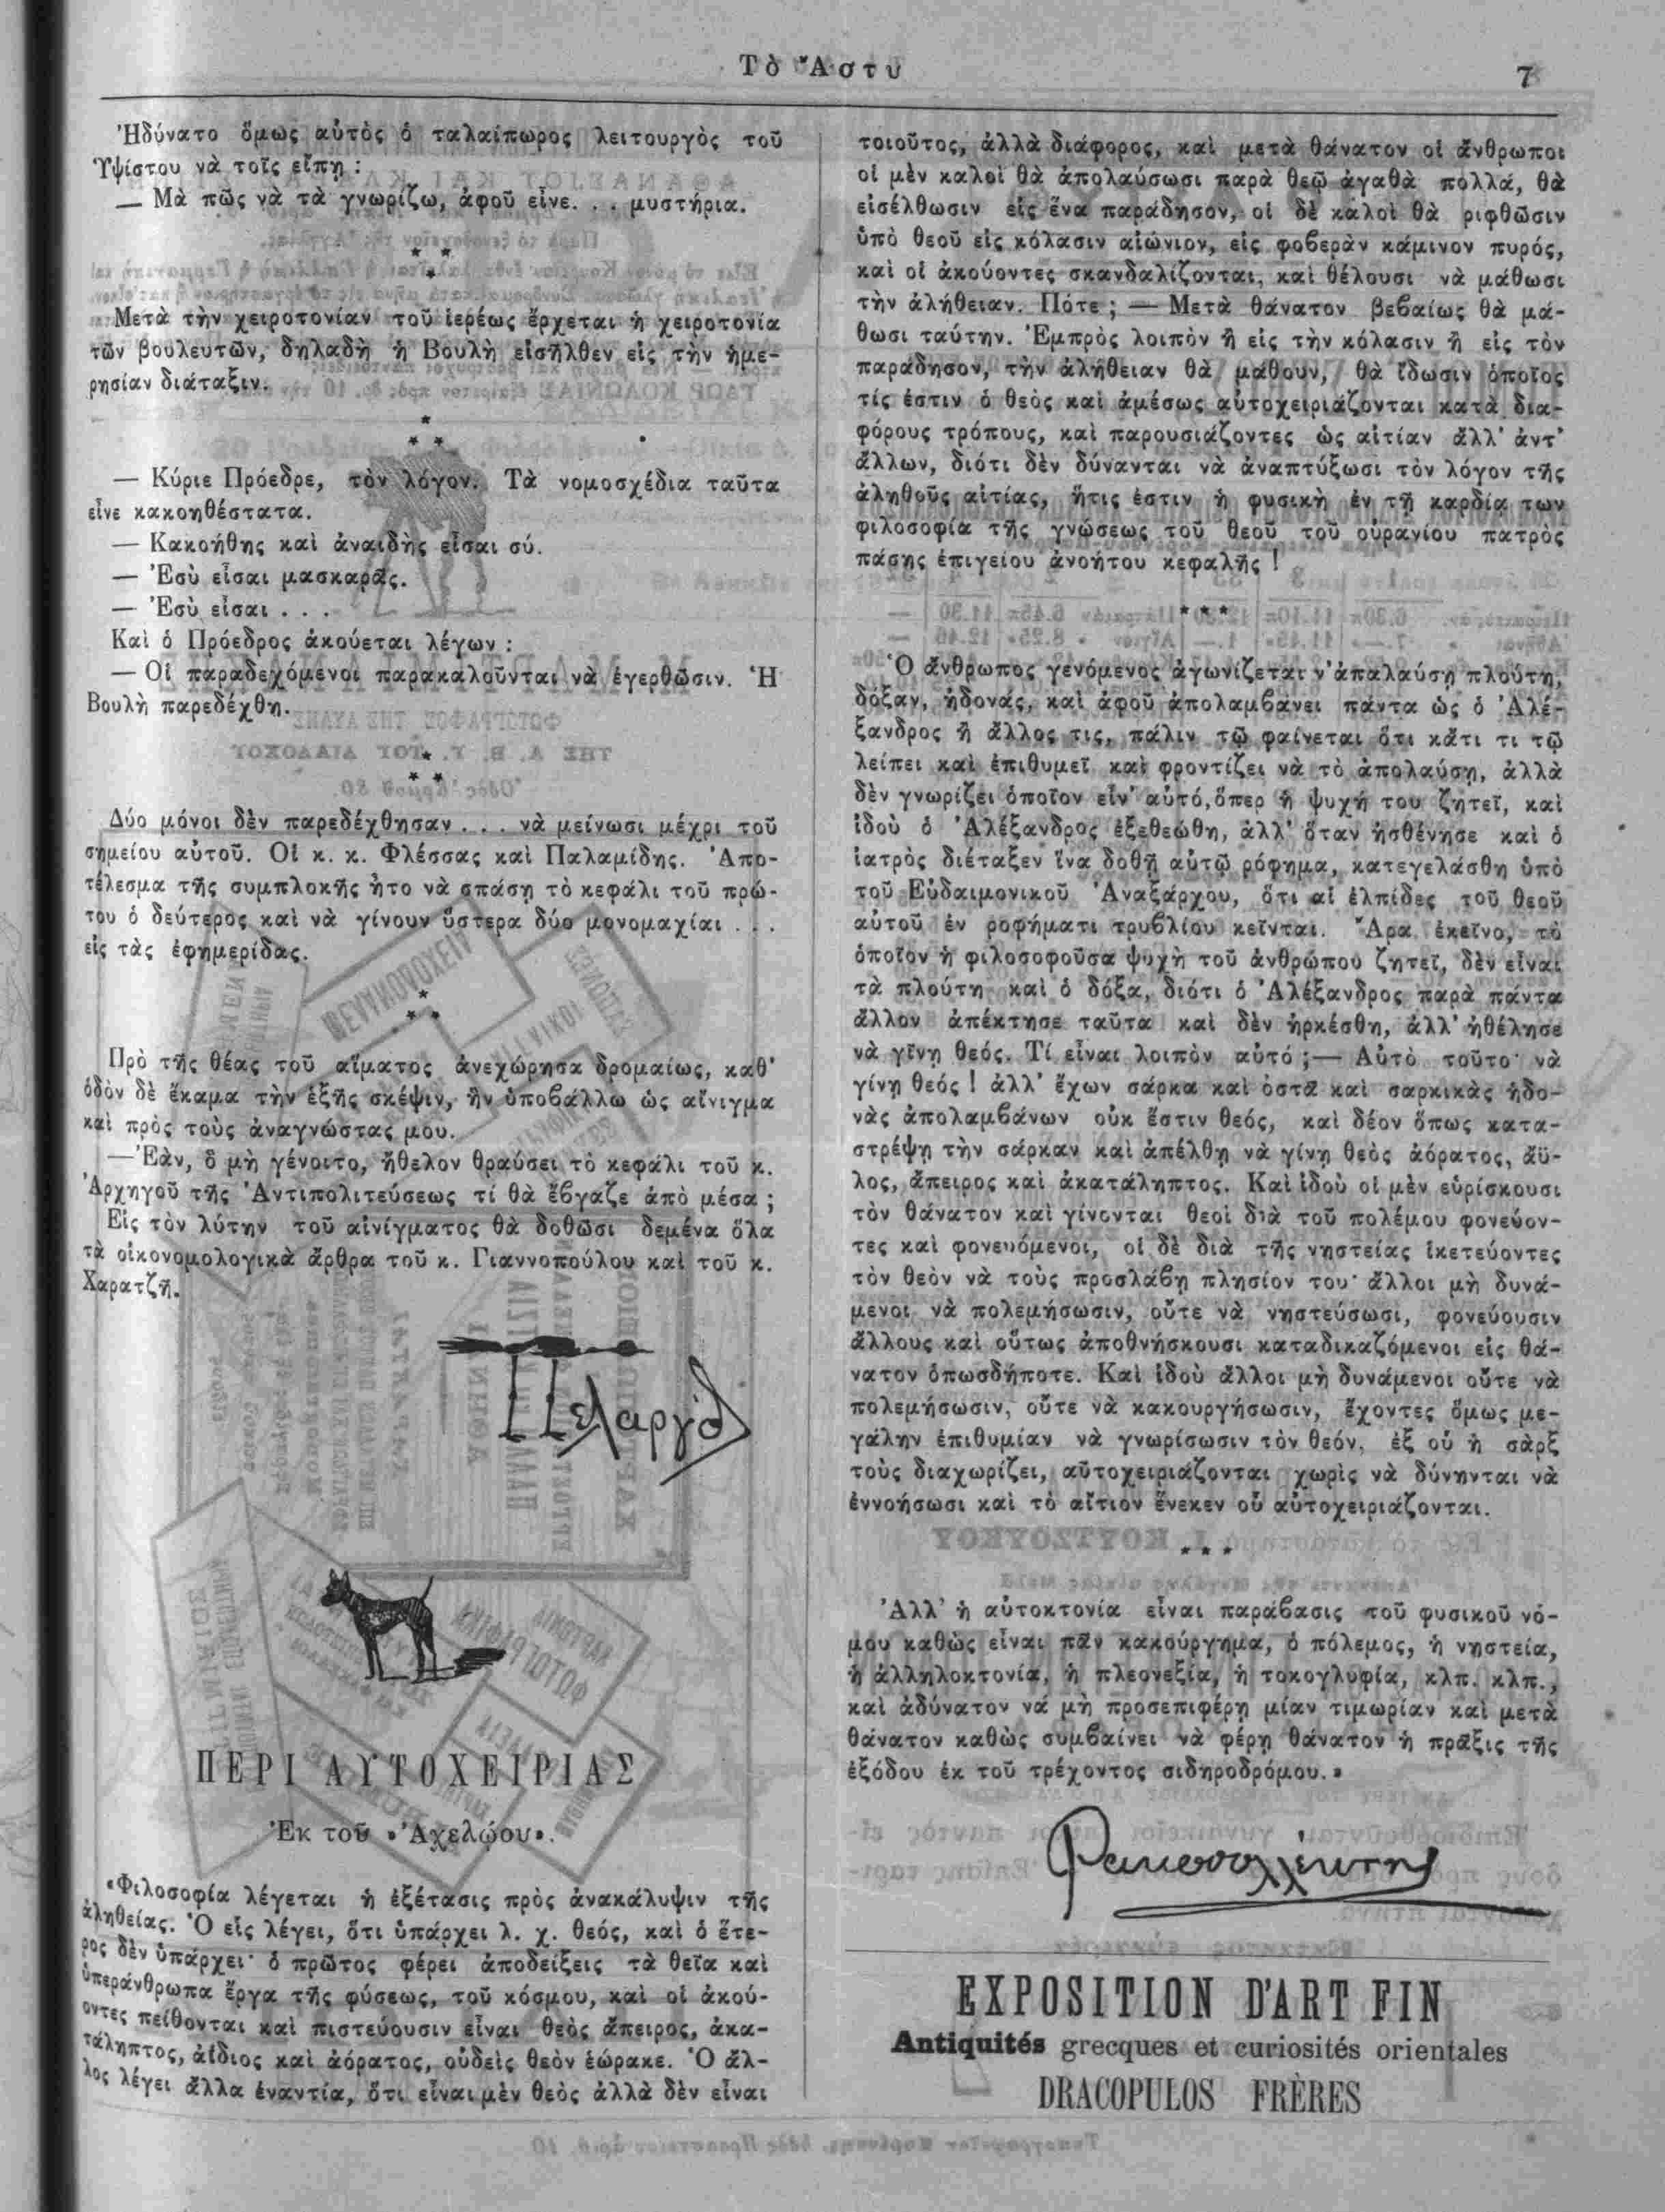 Τὸ Ἄστυ
7
Ἠδύνατο ὅμως αὐτὸς ὁ ταλαίπωρος λειτουργὸς τοῦ
Ὑψίστου νὰ τοῖς εἴπῃ :
— Μὰ πῶς νὰ τὰ γνωρίζω, ἀφοῦ εἶνε. . . μυστήρια.
* * *
Μετὰ τὴν χειροτονίαν τοῦ ἱερέως ἔρχεται ἡ χειροτονία
τῶν βουλευτῶν, δηλαδὴ ἡ Βουλὴ εἰσῆλθεν εἰς τὴν ἡμε-
ρησίαν διάταξιν.
* * *
— Κύριε Πρόεδρε, τὸν λόγον. Τὰ νομοσχέδια ταῦτα
εἶνε κακοηθέστατα.
— Κακοήθης καὶ ἀναιδὴς εἶσαι σύ.
— Ἐσὺ εἶσαι μασκαρᾶς.
— Ἐσὺ εἶσαι . . .
Καὶ ὁ Πρόεδρος ἀκούεται λέγων :
— Οἱ παραδεχόμενοι παρακαλοῦνται νὰ ἐγερθῶσιν. Ἡ
Βουλὴ παρεδέχθη.
* * *
Δύο μόνοι δὲν παρεδέχθησαν . . . νὰ μείνωσι μέχρι τοῦ
σημείου αὐτοῦ. Οἱ κ. κ. Φλέσσας καὶ Παλαμίδης. Ἀπο-
τέλεσμα τῆς συμπλοκῆς ἦτο νὰ σπάσῃ τὸ κεφάλι τοῦ πρώ-
του ὁ δεύτερος καὶ νὰ γίνουν ὕστερα δύο μονομαχίαι . . .
εἰς τὰς ἐφημερίδας.
* * *
Πρὸ τῆς θέας τοῦ αἵματος ἀνεχώρησα δρομαίως, καθ'
ὁδὸν δὲ ἔκαμα τὴν ἑξῆς σκέψιν, ἣν ὑποβάλλω ὡς αἴνιγμα
καὶ πρὸς τοὺς ἀναγνώστας μου.
—Ἐὰν, ὃ μὴ γένοιτο, ἤθελον θραύσει τὸ κεφάλι τοῦ κ.
Ἀρχηγοῦ τῆς Ἀντιπολιτεύσεως τί θὰ ἔβγαζε ἀπὸ μέσα ;
Εἰς τὸν λύτην τοῦ αἰνίγματος θὰ δοθῶσι δεμένα ὅλα
τὰ οἰκονομολογικὰ ἄρθρα τοῦ κ. Γιαννοπούλου καὶ τοῦ κ.
Χαρατζῆ.
Πελαργός
ΠΕΡΙ ΑΥΤΟΧΕΙΡΙΑΣ
Ἐκ τοῦ «Ἀχελῴου».
«Φιλοσοφία λέγεται ἡ ἐξέτασις πρὸς ἀνακάλυψιν τῆς
ἀληθείας. Ὁ εἷς λέγει, ὅτι ὑπάρχει λ. χ. θεός, καὶ ὁ ἕτε-
ρος δὲν ὑπάρχει· ὁ πρῶτος φέρει ἀποδείξεις τὰ θεῖα καὶ
ὑπεράνθρωπα ἔργα τῆς φύσεως, τοῦ κόσμου, καὶ οἱ ἀκού-
οντες πείθονται καὶ πιστεύουσιν εἶναι θεὸς ἄπειρος, ἀκα-
τάληπτος, ἀίδιος καὶ ἀόρατος, οὐδεὶς θεὸν ἑώρακε. Ὁ ἄλ-
λος λέγει ἄλλα ἐναντία, ὅτι εἶναι μὲν θεὸς ἀλλὰ δὲν εἶναι
τοιοῦτος, ἀλλὰ διάφορος, καὶ μετὰ θάνατον οἱ ἄνθρωποι
οἱ μὲν καλοὶ θὰ ἀπολαύσωσι παρὰ θεῷ ἀγαθὰ πολλά, θὰ
εἰσέλθωσιν εἰς ἕνα παράδησον, οἱ δὲ κακοὶ θὰ ριφθῶσιν
ὑπὸ θεοῦ εἰς κόλασιν αἰώνιον, εἰς φοβερὰν κάμινον πυρός,
καὶ οἱ ἀκούοντες σκανδαλίζονται, καὶ θέλουσι νὰ μάθωσι
τὴν ἀλήθειαν. Πότε ; — Μετὰ θάνατον βεβαίως θὰ μά-
θωσι ταύτην. Ἐμπρὸς λοιπὸν ἢ εἰς τὴν κόλασιν ἢ εἰς τὸν
παράδησον, τὴν ἀλήθειαν θὰ μάθουν, θὰ ἴδωσιν ὁποῖος
τίς ἐστιν ὁ θεὸς καὶ ἀμέσως αὐτοχειριάζονται κατὰ δια-
φόρους τρόπους, καὶ παρουσιάζοντες ὡς αἰτίαν ἄλλ' ἀντ'
ἄλλων, διότι δὲν δύνανται νὰ ἀναπτύξωσι τὸν λόγον τῆς
ἀληθοῦς αἰτίας, ἥτις ἐστιν ἡ φυσικὴ ἐν τῇ καρδίᾳ των
φιλοσοφία τῆς γνώσεως τοῦ θεοῦ τοῦ οὐρανίου πατρὸς
πάσης ἐπιγείου ἀνοήτου κεφαλῆς !
* * *
Ὁ ἄνθρωπος γενόμενος ἀγωνίζεται ν' ἀπαλαύσῃ πλούτη,
δόξαν, ἡδονάς, καὶ ἀφοῦ ἀπολαμβάνει πάντα ὡς ὁ Ἀλέ-
ξανδρος ἢ ἄλλος τις, πάλιν τῷ φαίνεται ὅτι κἄτι τι τῷ
λείπει καὶ ἐπιθυμεῖ καὶ φροντίζει νὰ τὸ ἀπολαύσῃ, ἀλλὰ
δὲν γνωρίζει ὁποῖον εἶν' αὐτό, ὅπερ ἡ ψυχή του ζητεῖ, καὶ
ἰδοὺ ὁ Ἀλέξανδρος ἐξεθεώθη, ἀλλ' ὅταν ἠσθένησε καὶ ὁ
ἰατρὸς διέταξεν ἵνα δοθῇ αὐτῷ ρόφημα, κατεγελάσθη ὑπὸ
τοῦ Εὐδαιμονικοῦ Ἀναξάρχου, ὅτι αἱ ἐλπίδες τοῦ θεοῦ
αὐτοῦ ἐν ροφήματι τρυβλίου κεῖνται. Ἄρα ἐκεῖνο, τὸ
ὁποῖον ἡ φιλοσοφοῦσα ψυχὴ τοῦ ἀνθρώπου ζητεῖ, δὲν εἶναι
τὰ πλούτη καὶ ὁ δόξα, διότι ὁ Ἀλέξανδρος παρὰ πάντα
ἄλλον ἀπέκτησε ταῦτα καὶ δὲν ἠρκέσθη, ἀλλ' ἠθέλησε
νὰ γίνῃ θεός. Τί εἶναι λοιπὸν αὐτό ;— Αὐτὸ τοῦτο· νὰ
γίνῃ θεός ! ἀλλ' ἔχων σάρκα καὶ ὀστᾶ καὶ σαρκικὰς ἡδο-
νὰς ἀπολαμβάνων οὐκ ἔστιν θεός, καὶ δέον ὅπως κατα-
στρέψῃ τὴν σάρκαν καὶ ἀπέλθῃ νὰ γίνῃ θεὸς ἀόρατος, ἄϋ-
λος, ἄπειρος καὶ ἀκατάληπτος. Καὶ ἰδοὺ οἱ μὲν εὑρίσκουσι
τὸν θάνατον καὶ γίνονται θεοὶ διὰ τοῦ πολέμου φονεύον-
τες καὶ φονευόμενοι, οἱ δὲ διὰ τῆς νηστείας ἱκετεύοντες
τὸν θεὸν νὰ τοὺς προσλάβῃ πλησίον του· ἄλλοι μὴ δυνά-
μενοι νὰ πολεμήσωσιν, οὔτε νὰ νηστεύσωσι, φονεύουσιν
ἄλλους καὶ οὕτως ἀποθνήσκουσι καταδικαζόμενοι εἰς θά-
νατον ὁπωσδήποτε. Καὶ ἰδοὺ ἄλλοι μὴ δυνάμενοι οὔτε νὰ
πολεμήσωσιν, οὔτε νὰ κακουργήσωσιν, ἔχοντες ὅμως με-
γάλην ἐπιθυμίαν νὰ γνωρίσωσιν τὸν θεόν, ἐξ οὗ ἡ σὰρξ
τοὺς διαχωρίζει, αὐτοχειριάζονται χωρὶς νὰ δύνηνται νὰ
ἐννοήσωσι καὶ τὸ αἴτιον ἕνεκεν οὗ αὐτοχειριάζονται.
* * *
Ἀλλ' ἡ αὐτοκτονία εἶναι παράβασις τοῦ φυσικοῦ νό-
μου καθὼς εἶναι πᾶν κακούργημα, ὁ πόλεμος, ἡ νηστεία,
ἡ ἀλληλοκτονία, ἡ πλεονεξία, ἡ τοκογλυφία, κλπ. κλπ.,
καὶ ἀδύνατον νά μὴ προσεπιφέρῃ μίαν τιμωρίαν καὶ μετὰ
θάνατον καθὼς συμβαίνει νὰ φέρῃ θάνατον ἡ πρᾶξις τῆς
ἐξόδου ἐκ τοῦ τρέχοντος σιδηροδρόμου.»
Ρακοσυλλέκτης
EXPOSITION D'ART FIN
Antiquités grecques et curiosités orientales
DRACOPULOS FRÈRES